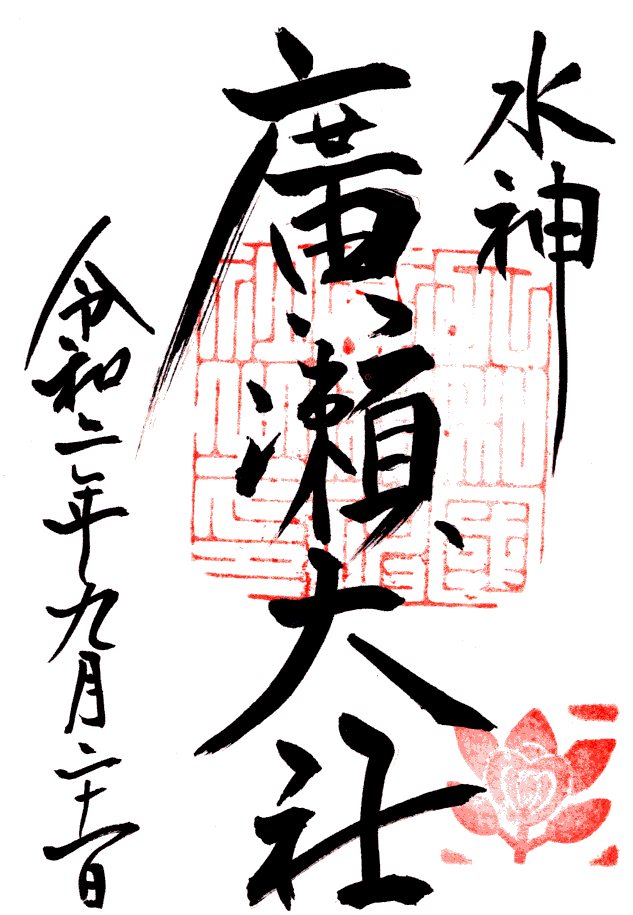 水神
廣瀬大社
令和二年九月二十一日